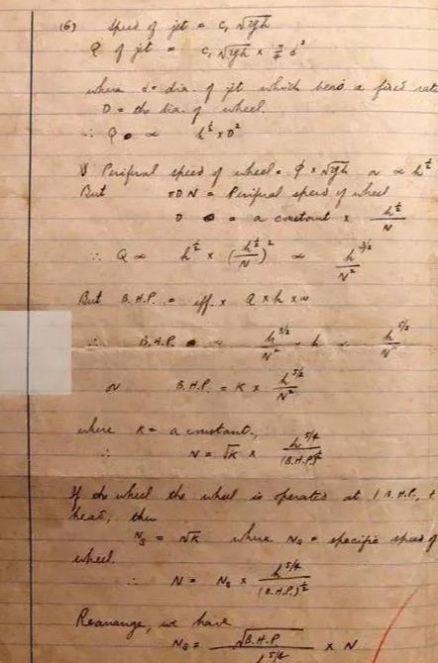 (6) Speed of jet = C, √2gh
Q of jet = C, √2gh x π/4 d²
where d = dia. of jet which bears a fixed rat
D = the dia. of wheel.
∴ Q ∝ h^½ x D²
Periferal speed of wheel = φ x √2gh or ∝ h^½
But πDN = Periferal speed of wheel
D = a constant x h^½/N
∴ Q ∝ h^½ x (h^½/N)² ∝ h^3/2/N²
But B.H.P. = eff. x Q x h x w
∴ B.H.P. ∝ h^3/2/N² x h ∝ h^5/2/N²
or B.H.P. = K x h^5/2/N²
where K = a constant,
∴ N = √K x h^5/4/(B.H.P)^½
If the wheel the wheel is operated at 1 B.H.P.,
head, then
Ns = √K where Ns = specific speed of
wheel.
∴ N = Ns x h^5/4/(B.H.P.)^½
Rearrange, we have
Ns = √B.H.P/h^5/4 x N